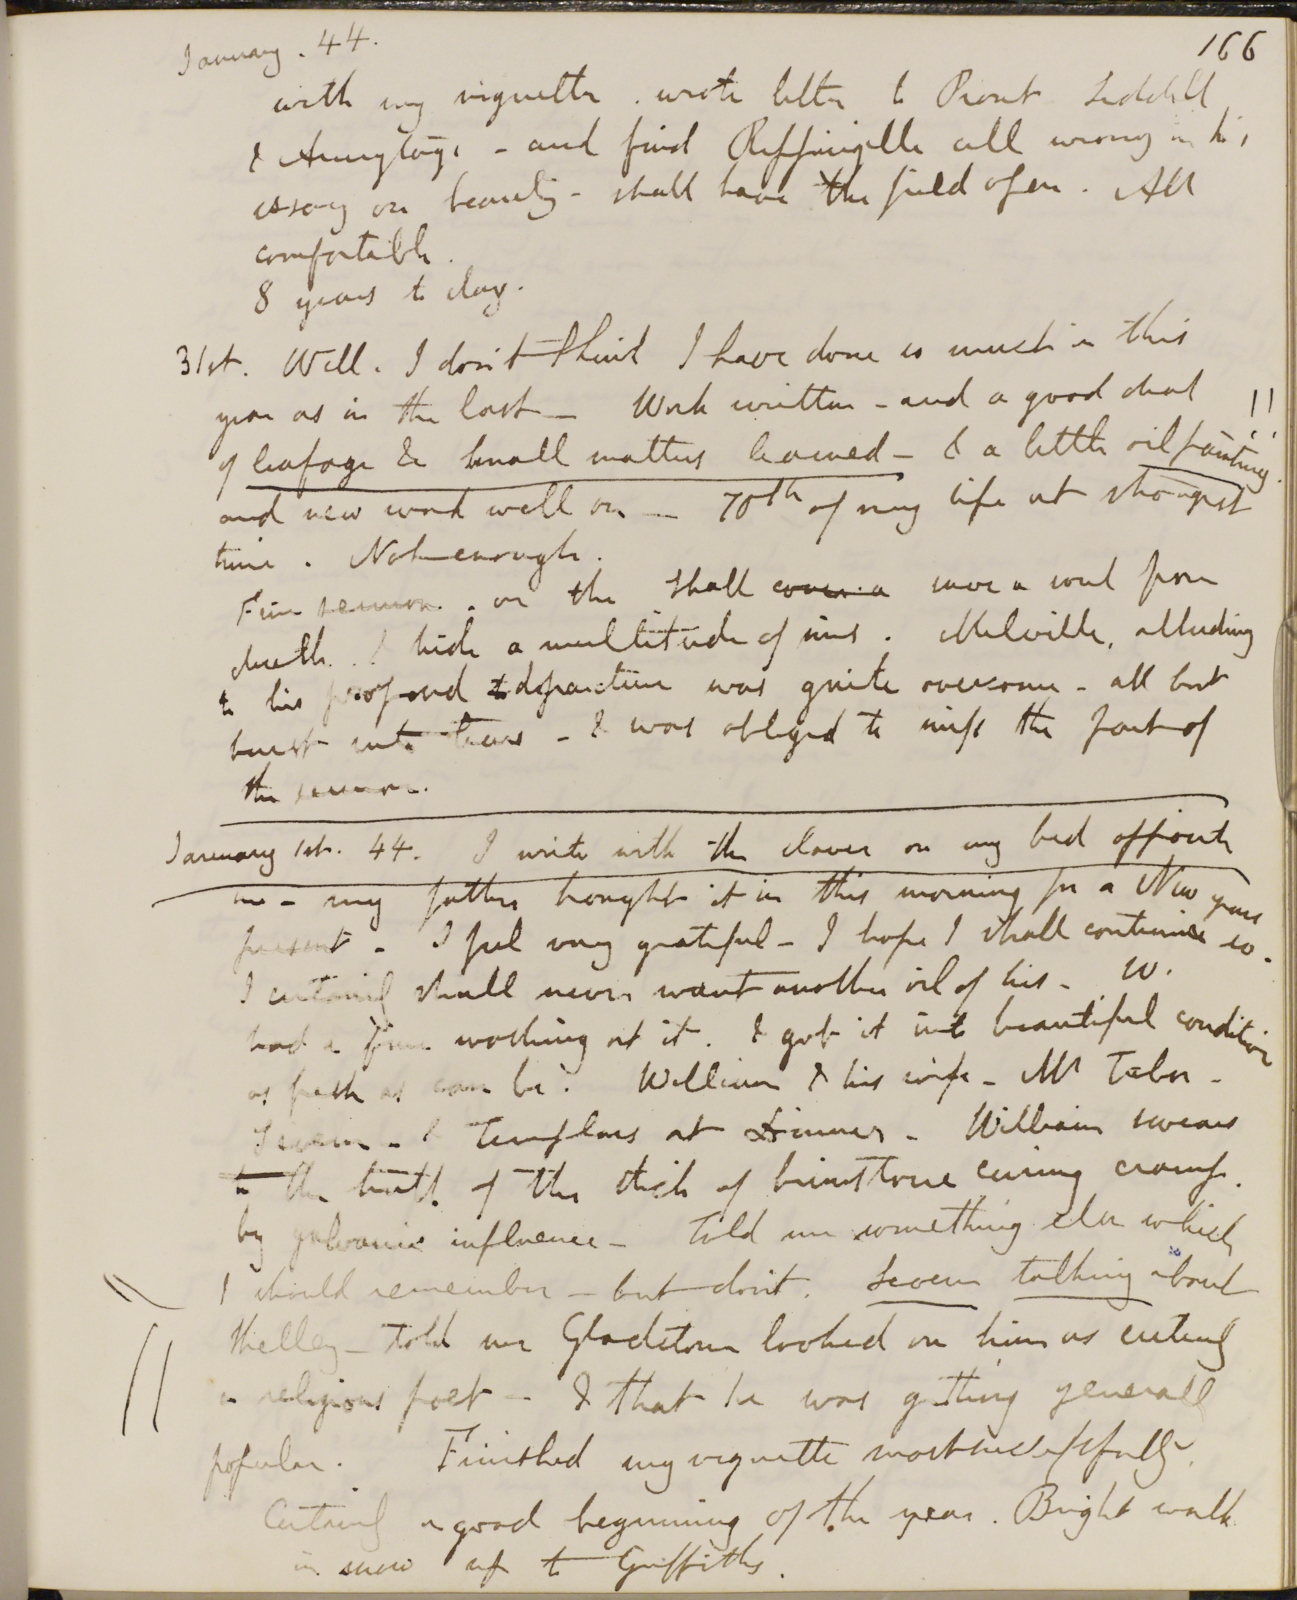 January. 44.
166
with my vignette. wrote letter to Prout Liddell
& Armytage - and find Rippingille all wrong in his
essay on beauty - shall have the field open. All
comfortable.
8 years to day.
31st. Well. I don't think I have done so much in this
year as in the last - Work written - and a good deal !!
of leafage & small matters learned - & a little oil painting.
and new work well on - 70th of my life at strongest
time. Not enough.
Fine sermon. on the shall save a soul from
death. & hide a multitude of sins. Melville, alluding
to his proposed departure was quite overcome - all but
burst into tears - & was obliged to miss the part of
the sermon.
January 1st. 44. I write with the slaver on my bed opposite
me - my father brought it in this morning for a New years
present - I feel very grateful - I hope I shall continue so.
I certainly shall never want another oil of his - W.
had a fine washing at it. & got it into beautiful condition
as fresh as can be. William & his wife - Mr Tabor -
Severn - & Templars at dinner - William swears
to the truth of the stick of brimstone curing cramp.
by galvanic influence - told me something else which
I should remember - but don't. Severn talking about
Shelley - told me Gladstone looked on him as entirely
a religious poet - & that he was getting generally
popular. Finished my vignette most successfully.
Certainly a good beginning of the year. Bright walk
in snow up to Griffiths.